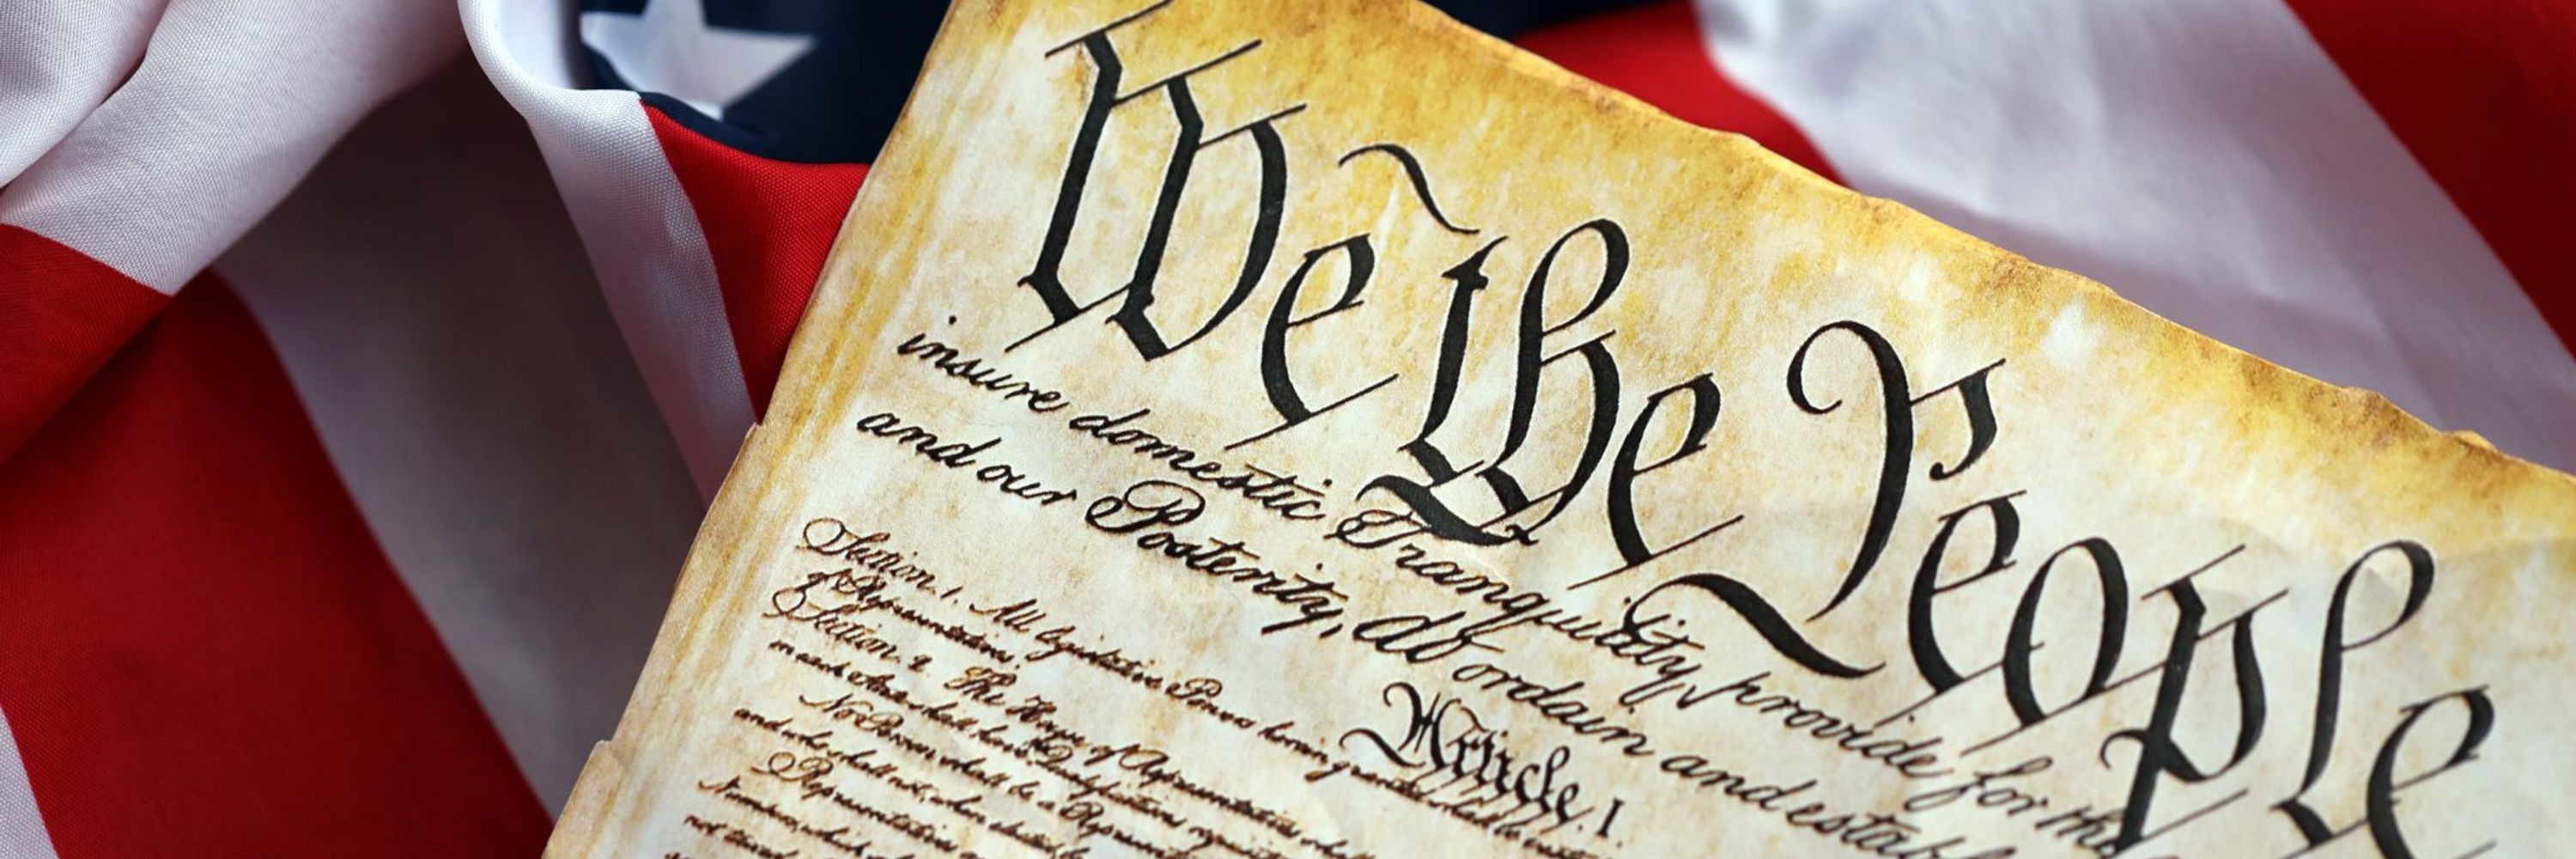 We the People
insure domestic Tranquility, provide for the
and our Posterity, do ordain and establ
Article. I
Section. 1. All legislative Powers herein granted shall be
of Representatives.
Section. 2. The House of Representatives shall
in each State shall have the Qualifications requisite
No Person shall be a Representative
and who shall not, when elected, be
Representatives
Numbers, which
not